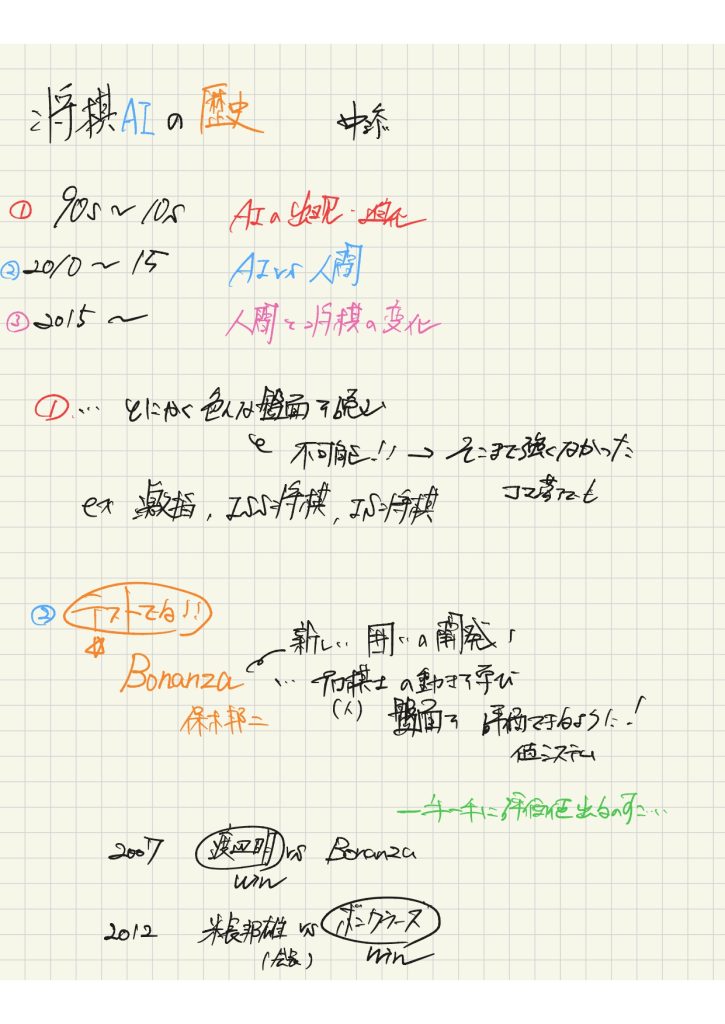 将棋AIの歴史
① 90s〜10s AIの出現・進化
② 2010〜15 AI vs 人間
③ 2015〜 人間と将棋の変化
①… とにかく色んな盤面を読む
不可能!! → そこまで強くなかった
コマ落ちでも
ex 激指, ISS将棋, IS将棋
② テストでる!!
新しい 囲いの開発!
Bonanza … プロ棋士の動きを学び
(人) 盤面を 評価できるように!
保木邦二
値システム
一手一手に評価値出るのすご…
2007 渡辺明 vs Bonanza
win
2012 米長邦雄 vs ボンクラーズ
(会長) win